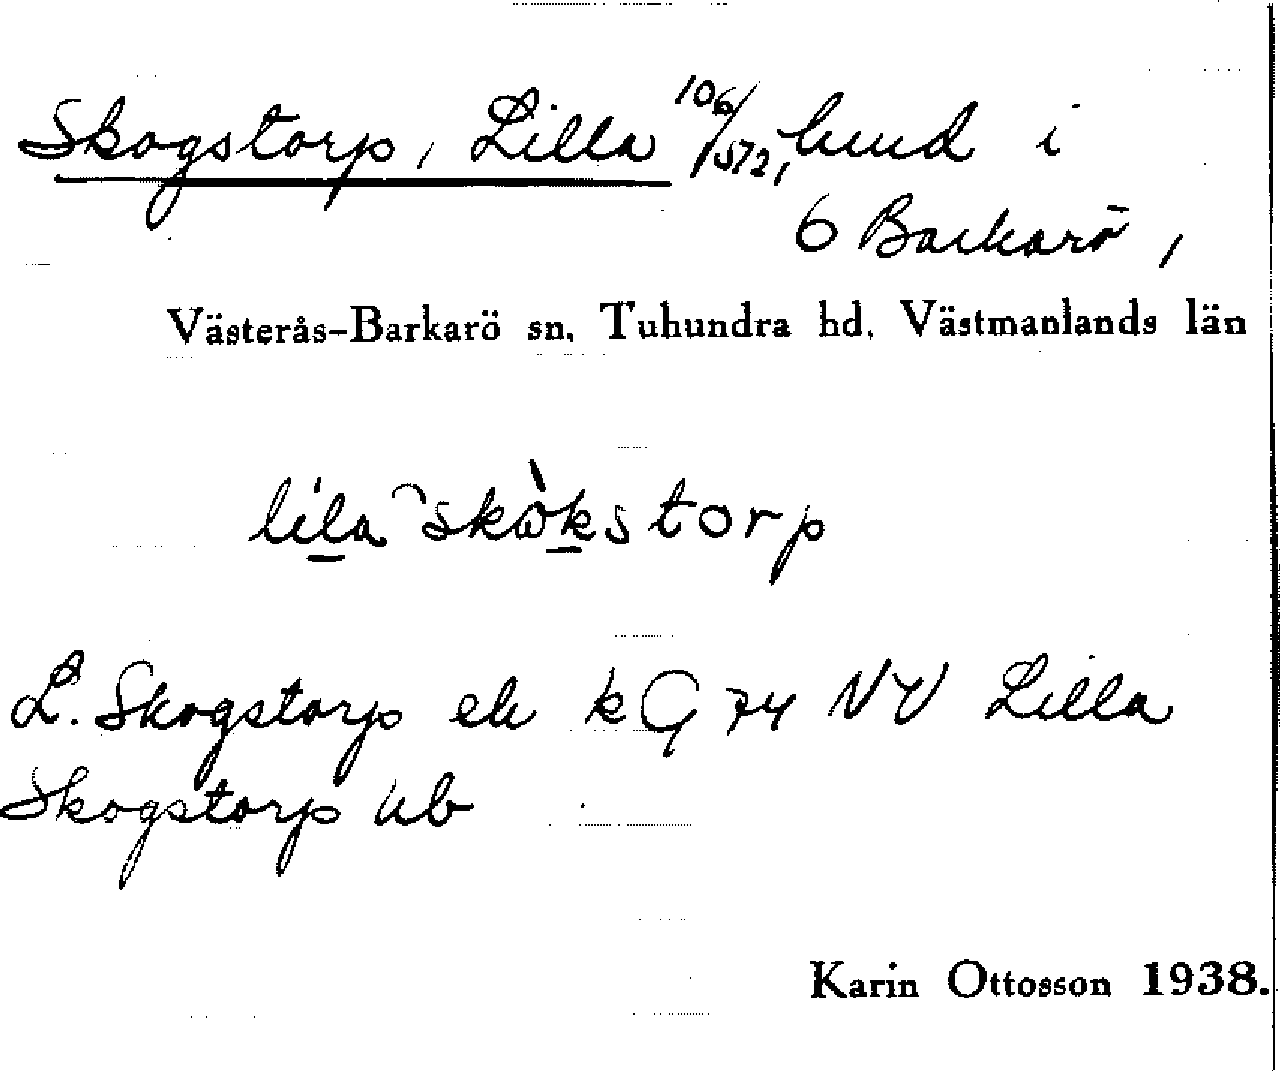 Skogstorp, Lilla 106/572, lund i
6 Barkarö,
Västerås-Barkarö sn. Tuhundra hd. Västmanlands län
lila skòkstorp
L. Skogstorp ek kG 74 NV Lilla
Skogstorp ub
Karin Ottosson 1938.